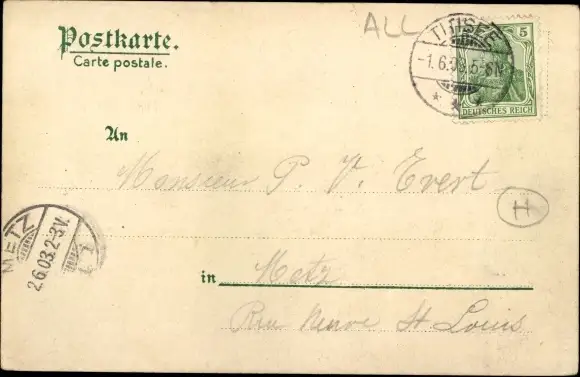 ALL
Postkarte.
Carte postale.
TITISEE
-1.6.03.5-6N.
5
DEUTSCHES REICH
An
Monsieur P. V. Evert
H
METZ
2.6.03.2-3V.
in Metz
Rue Neuve St Louis